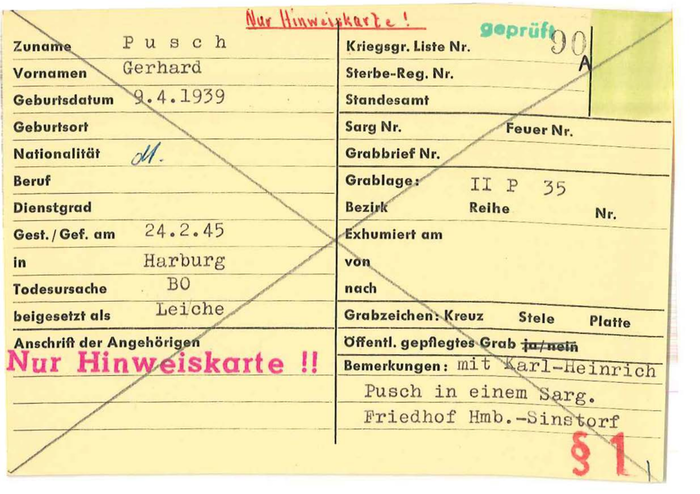 Nur Hinweiskarte !
geprüft
90
A
Zuname Pusch
Vornamen Gerhard
Geburtsdatum 9.4.1939
Geburtsort
Nationalität d.
Beruf
Dienstgrad
Gest./Gef. am 24.2.45
in Harburg
Todesursache BO
beigesetzt als Leiche
Anschrift der Angehörigen
Nur Hinweiskarte !!
Kriegsgr. Liste Nr.
Sterbe-Reg. Nr.
Standesamt
Sarg Nr. Feuer Nr.
Grabbrief Nr.
Grablage: II P 35
Bezirk Reihe Nr.
Exhumiert am
von
nach
Grabzeichen: Kreuz Stele Platte
Öffentl. gepflegtes Grab ja/nein
Bemerkungen: mit Karl-Heinrich
Pusch in einem Sarg.
Friedhof Hmb.-Sinstorf
§ 1